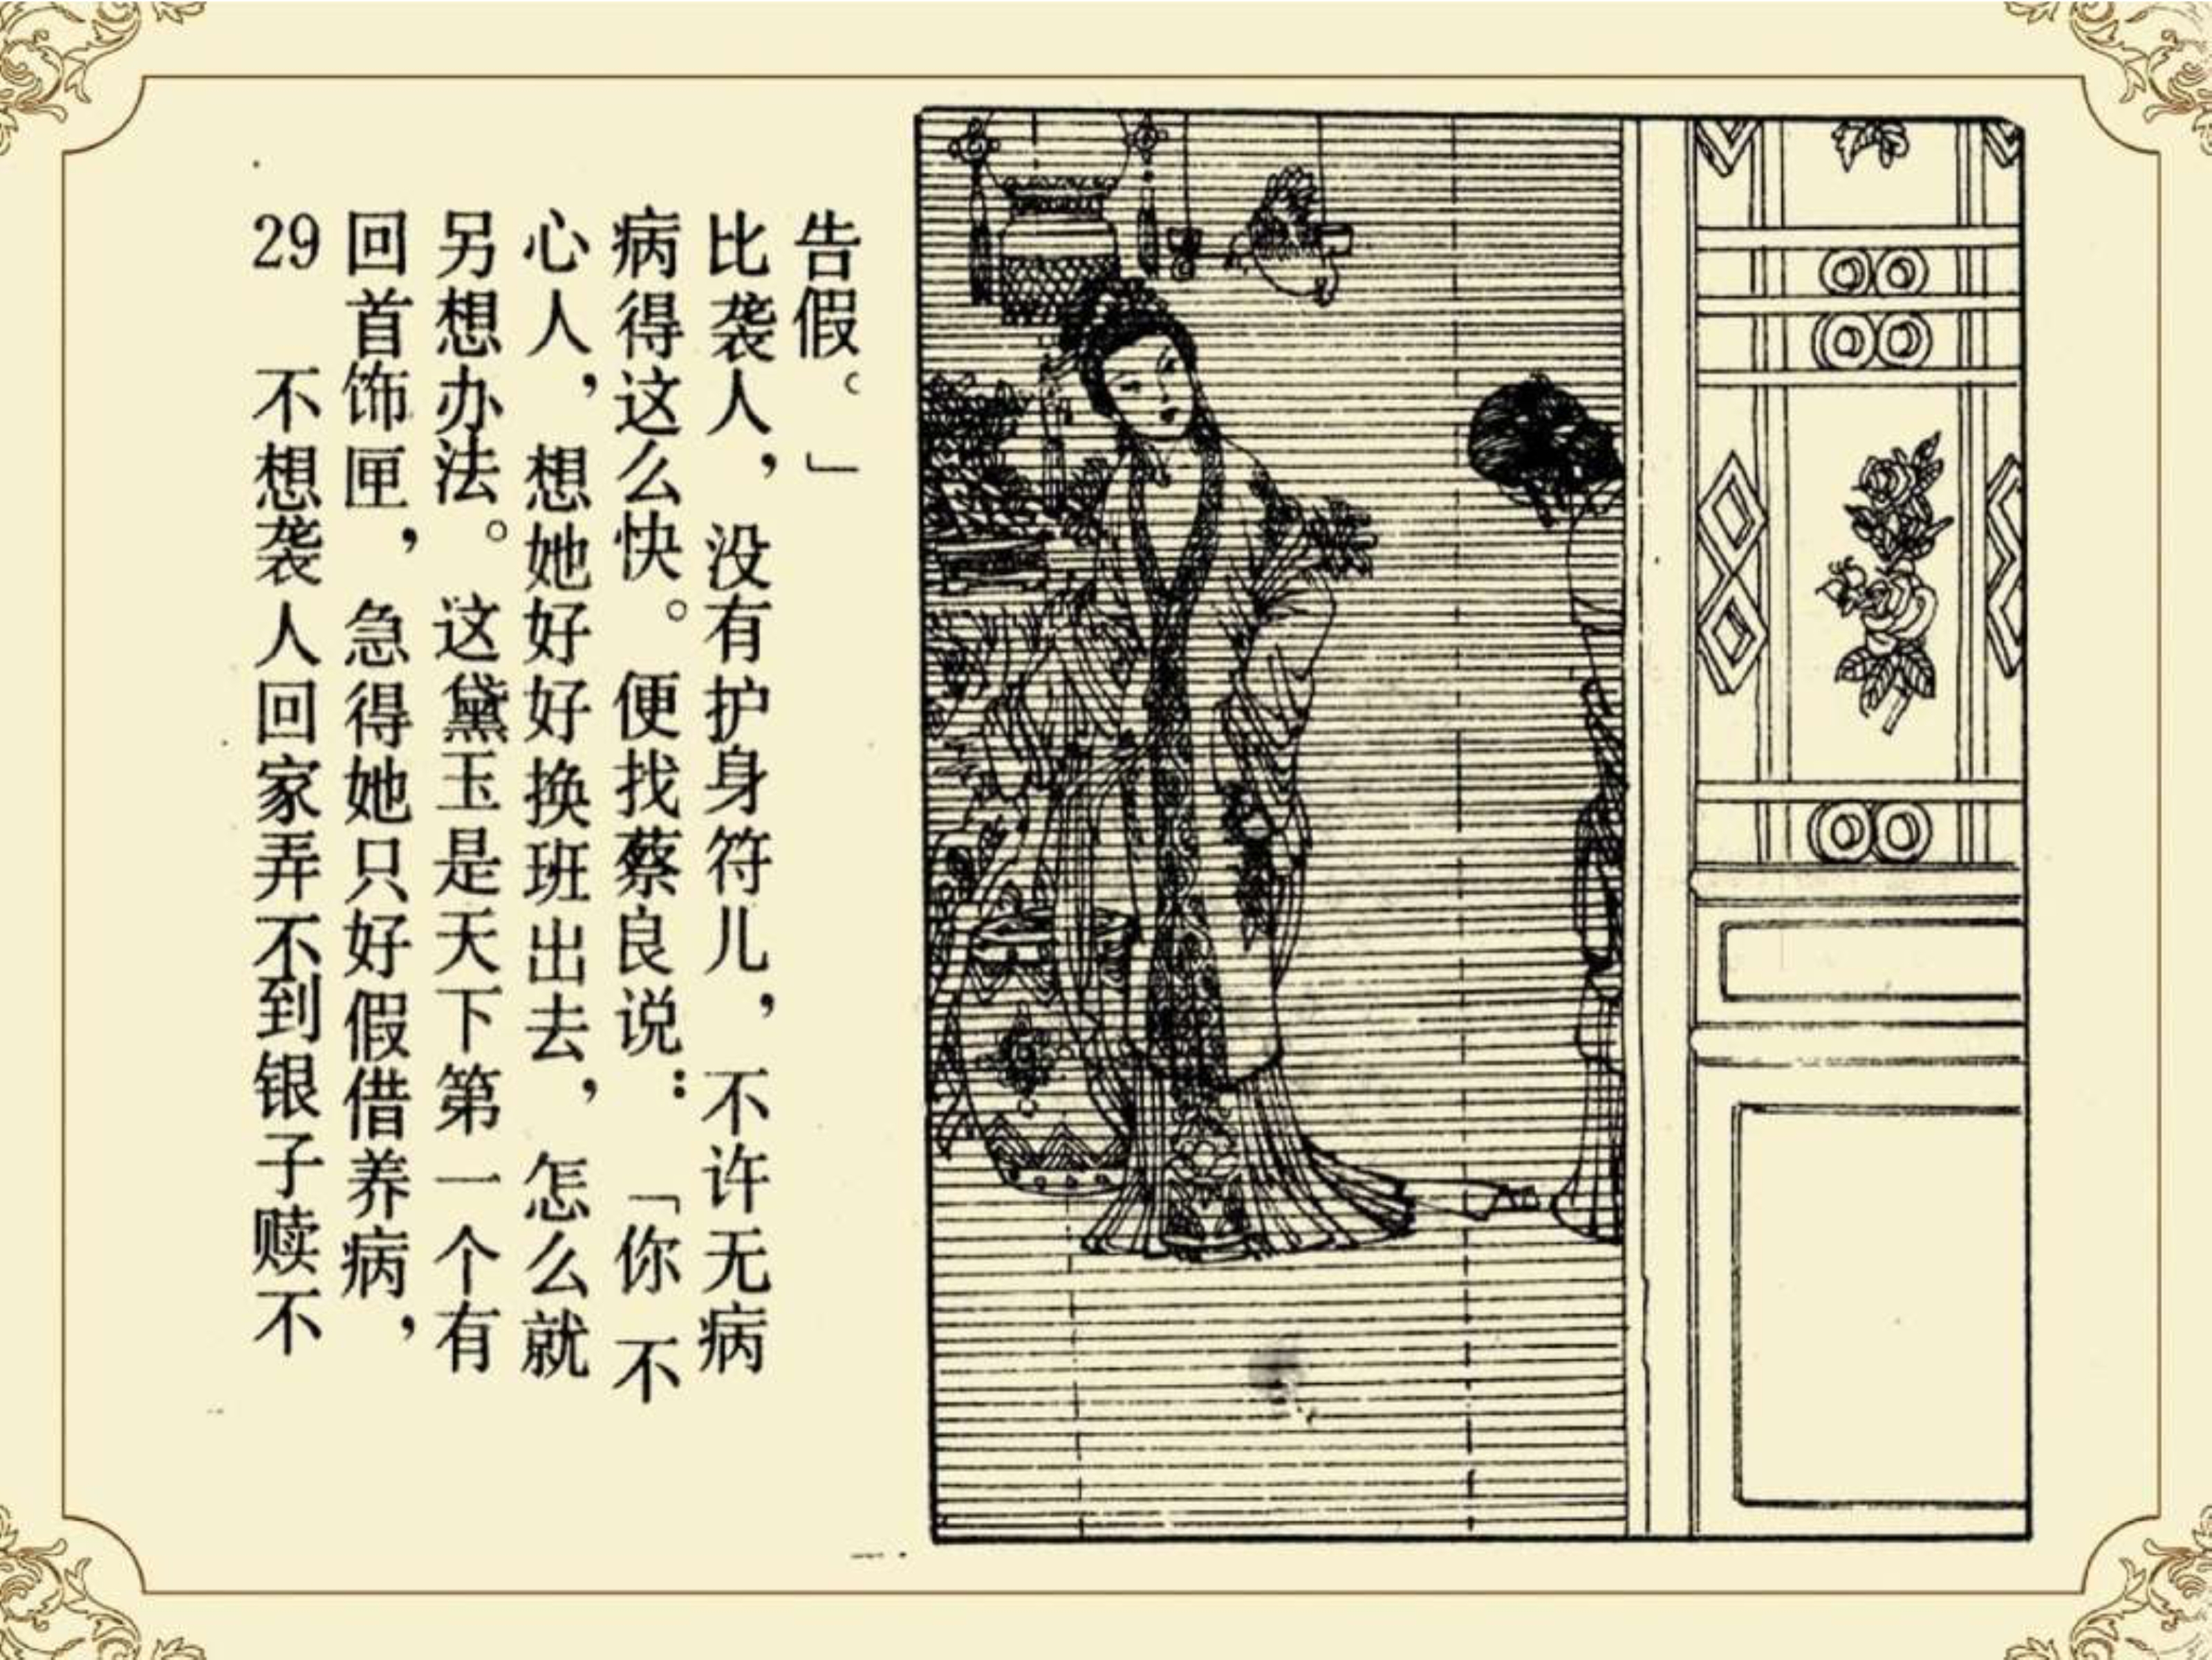 29 不想袭人回家弄不到银子赎不
回首饰匣，急得她只好假借养病，
另想办法。这黛玉是天下第一个有
心人，想她好好换班出去，怎么就
病得这么快。便找蔡良说：「你不
比袭人，没有护身符儿，不许无病
告假。」